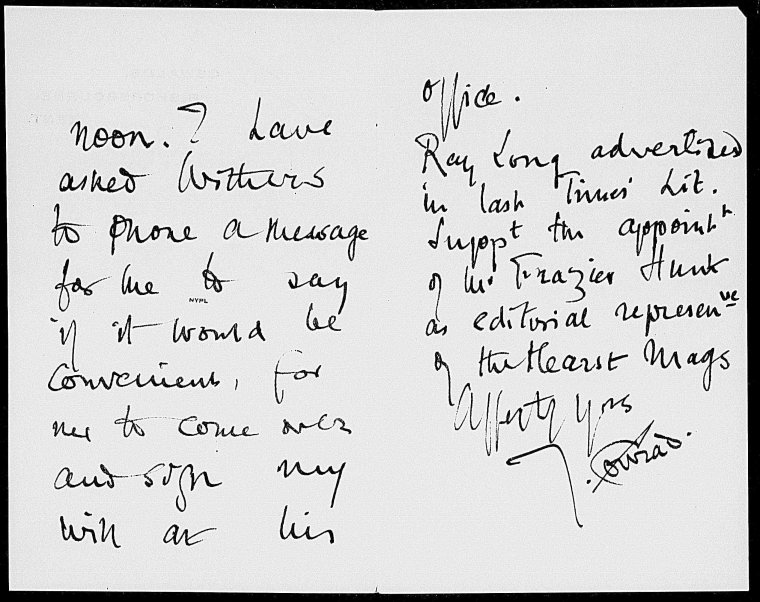 noon. I have
asked Withers
to phone a message
for me to say
NYPL
if it would be
convenient, for
me to come over
and sign my
will at his
office.
Ray Long advertised
in last Times' Lit.
Suppt the appointt
of Mr Frazier Hunt
as editorial represenve
of the Hearst Mags
Affectly yrs
J. Conrad.